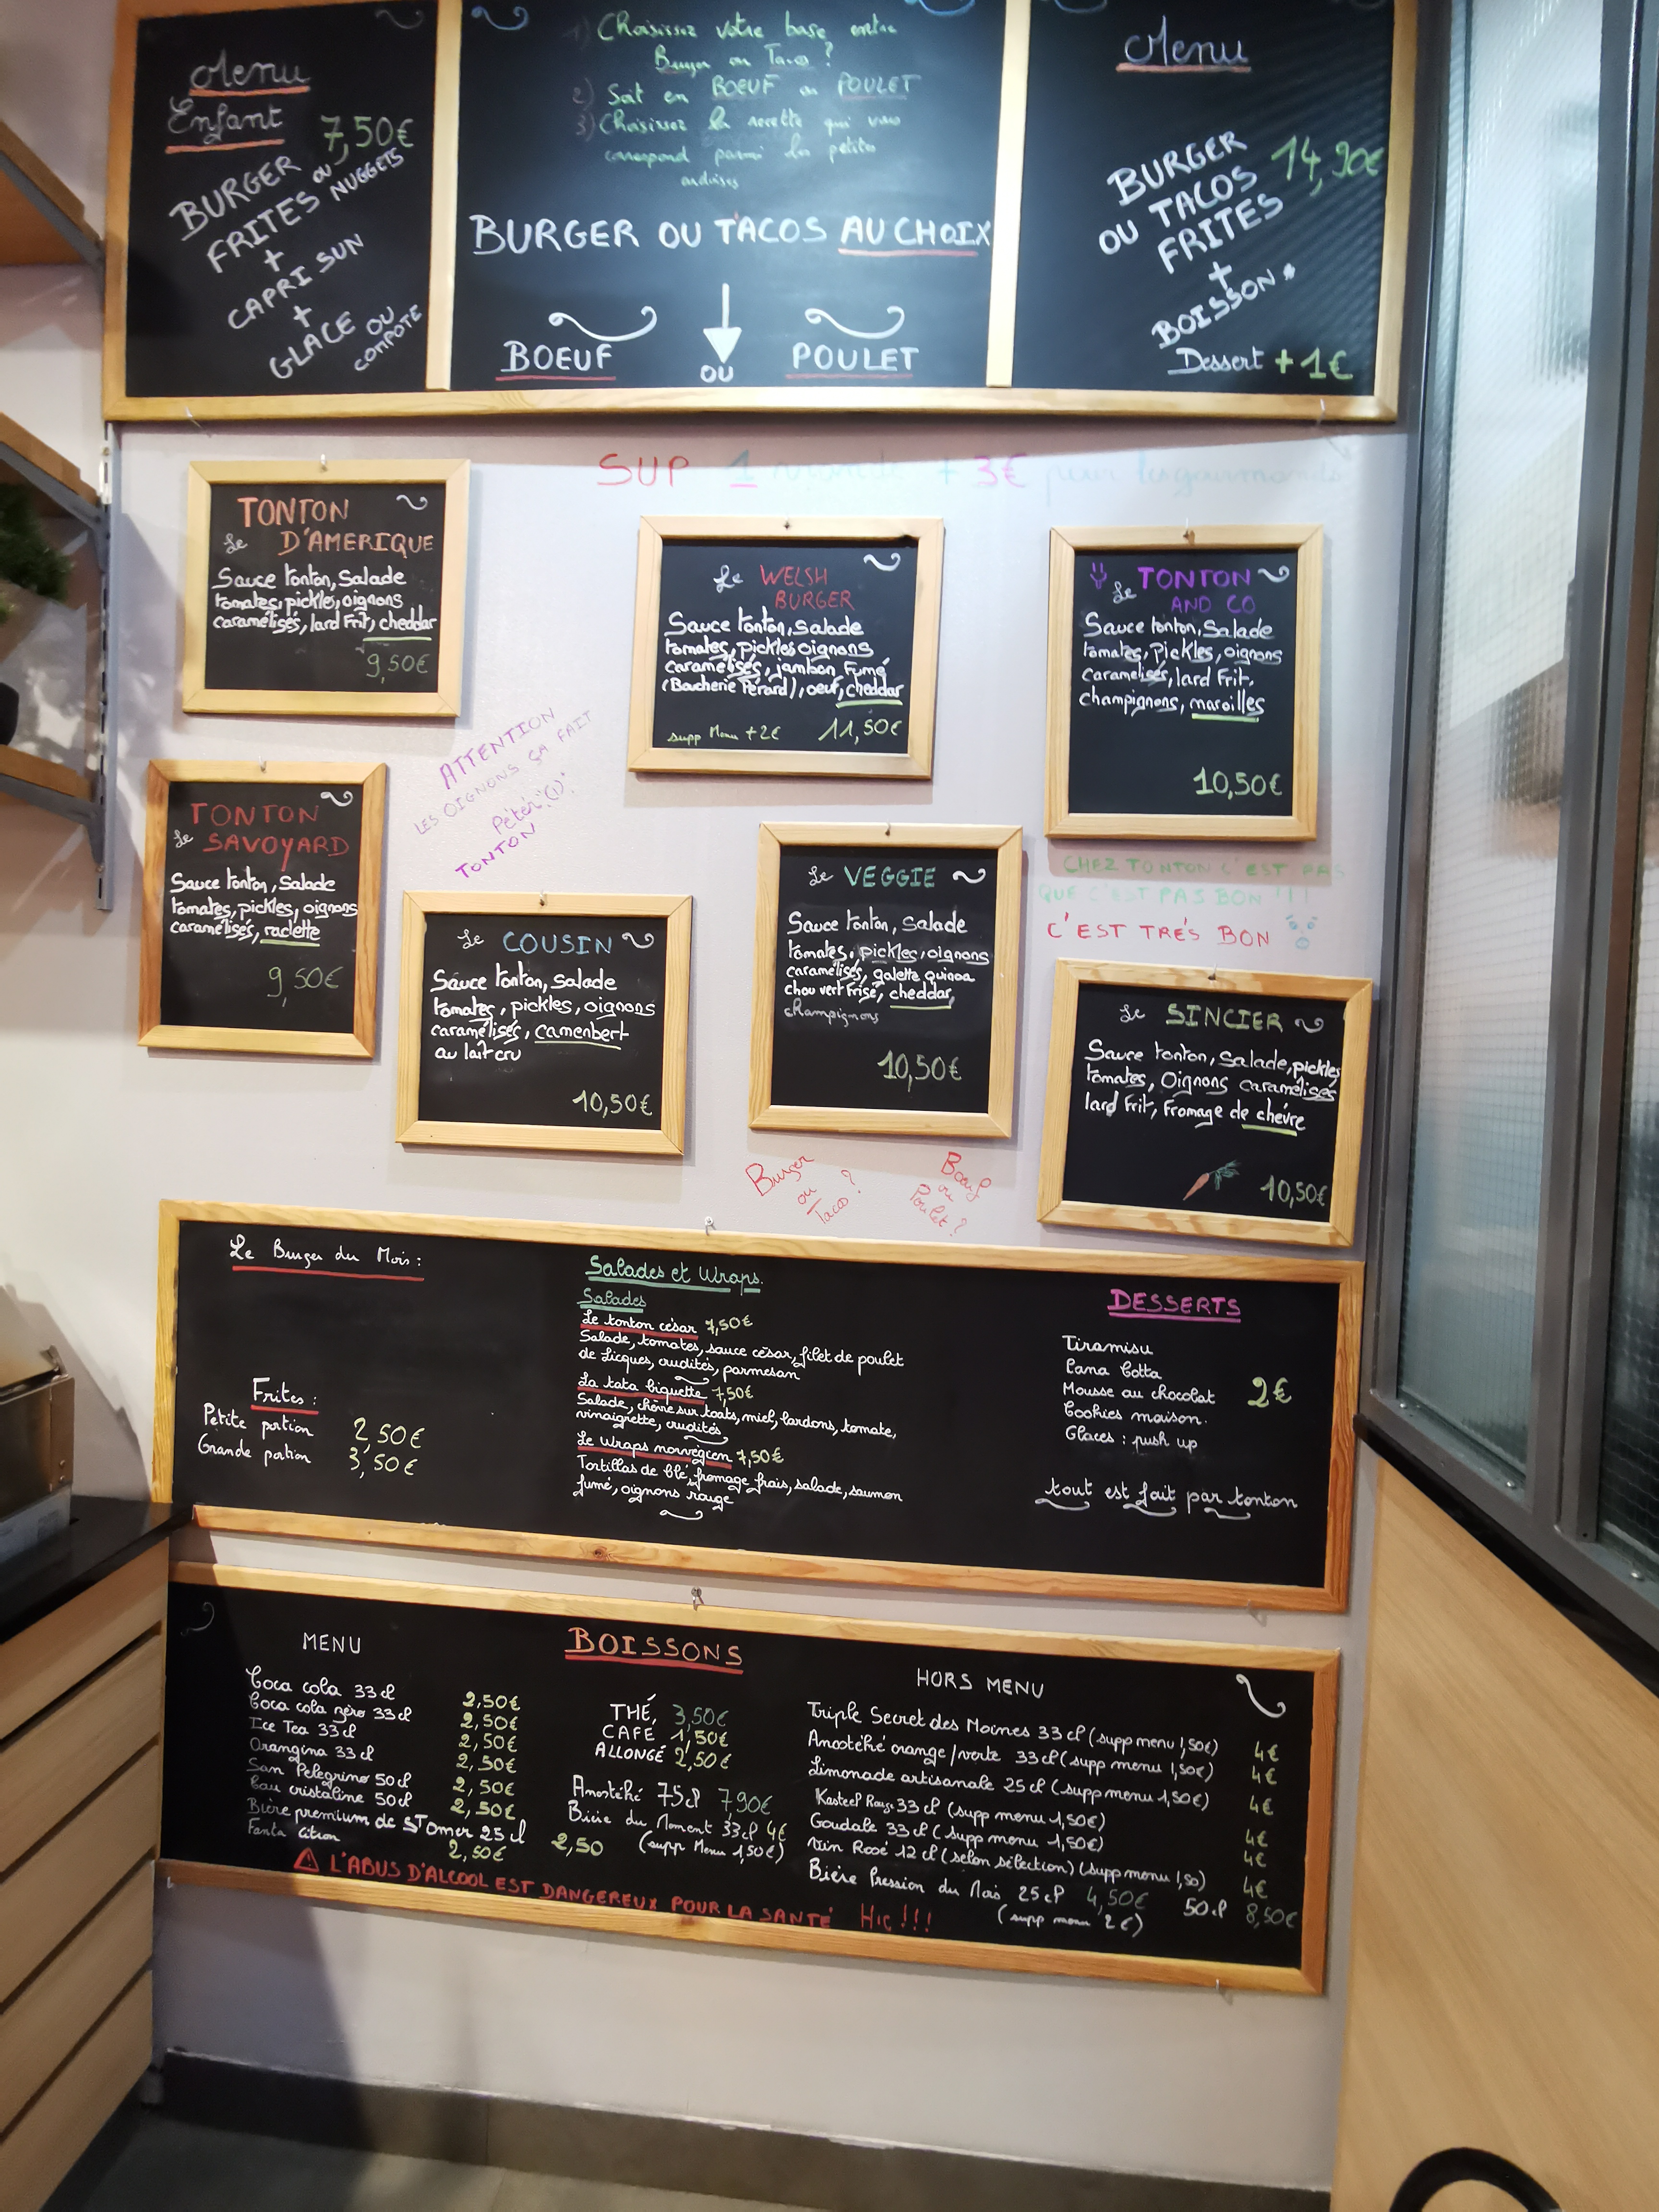 Menu
Enfant
7,50€
BURGER
FRITES OU NUGGETS
+
CAPRI SUN
+
GLACE OU
COMPOTE
1) Choisissez votre base entre
Burger ou Taco ?
2) Soit en BOEUF ou POULET
3) Choisissez la recette qui vous
correspond parmi les petites
ardoises
BURGER OU TACOS AU CHOIX
BOEUF
OU
POULET
Menu
BURGER
OU TACOS
14,90€
FRITES
+
BOISSON *
Dessert + 1€
SUP 1 viande + 3€ pour les gourmands
Le TONTON
D'AMERIQUE
Sauce tonton, Salade
tomates, pickles, oignons
caramélisés, lard Frit, cheddar
9,50€
Le WELSH
BURGER
Sauce tonton, Salade
tomates, pickles oignons
caramélisés, jambon Fumé
(Boucherie Pérard), oeuf, cheddar
supp Menu +2€ 11,50€
Le TONTON
AND CO
Sauce tonton, Salade
tomates, Pickles, oignons
caramelisés, lard Frit,
champignons, maroilles
10,50€
ATTENTION
LES OIGNONS ÇA FAIT
Péter
TONTON
Le TONTON
SAVOYARD
Sauce tonton, Salade
tomates, pickles, oignons
caramélisés, raclette
9,50€
Le COUSIN
Sauce tonton, Salade
tomates, pickles, oignons
caramélisés, camenbert
au lait cru
10,50€
Le VEGGIE
Sauce tonton, Salade
tomates, pickles, oignons
caramélisés, galette quinoa
chou vert Frisé, cheddar,
champignons
10,50€
CHEZ TONTON C'EST PAS
QUE C'EST PAS BON !!!
C'EST TRÉS BON
Le SINCIER
Sauce tonton, Salade, pickles
tomates, Oignons caramélises
lard Frit, Fromage de chèvre
10,50€
Burger
ou
Taco ?
Boeuf
ou
Poulet ?
Le Burger du Mois :
Frites :
Petite portion 2,50€
Grande portion 3,50€
Salades et Wraps.
Salades
Le tonton césar 7,50€
Salade, tomates, sauce césar, filet de poulet
de Licques, crudités, parmesan
La tata biquette 7,50€
Salade, chèvre sur toats, miel, lardons, tomate,
vinaigrette, crudités
Le Wraps norvégien 7,50€
Tortillas de blé, fromage frais, salade, saumon
fumé, oignons rouge
DESSERTS
Tiramisu
Pana Cotta
Mousse au chocolat 2€
Cookies maison.
Glaces : push up
tout est fait par tonton
BOISSONS
MENU
Coca cola 33 cl 2,50€
Coca cola zéro 33 cl 2,50€
Ice Tea 33 cl 2,50€
Orangina 33 cl 2,50€
San Pelegrino 50cl 2,50€
Eau cristaline 50cl 2,50€
Bière premium de ST Omer 25 cl 2,50
Fanta citron 2,50€
THÉ, 3,50€
CAFÉ 1,50€
ALLONGÉ 2,50€
Amostéhé 75cl 7,90€
Bière du Moment 33cl 4€
(supp Menu 1,50€)
HORS MENU
Triple Secret des Moines 33 cl (supp menu 1,50€) 4€
Amostéhé orange/verte 33 cl (supp menu 1,50€) 4€
Limonade artisanale 25 cl (supp menu 1,50€) 4€
Kasteel Rouge 33 cl (supp menu 1,50€) 4€
Goudale 33 cl (supp menu 1,50€) 4€
Vin Rosé 12 cl (selon sélection) (supp menu 1,50) 4€
Bière Pression du Mois 25 cl 4,50€ 50cl 8,50€
(supp menu 2€)
L'ABUS D'ALCOOL EST DANGEREUX POUR LA SANTÉ HIC !!!